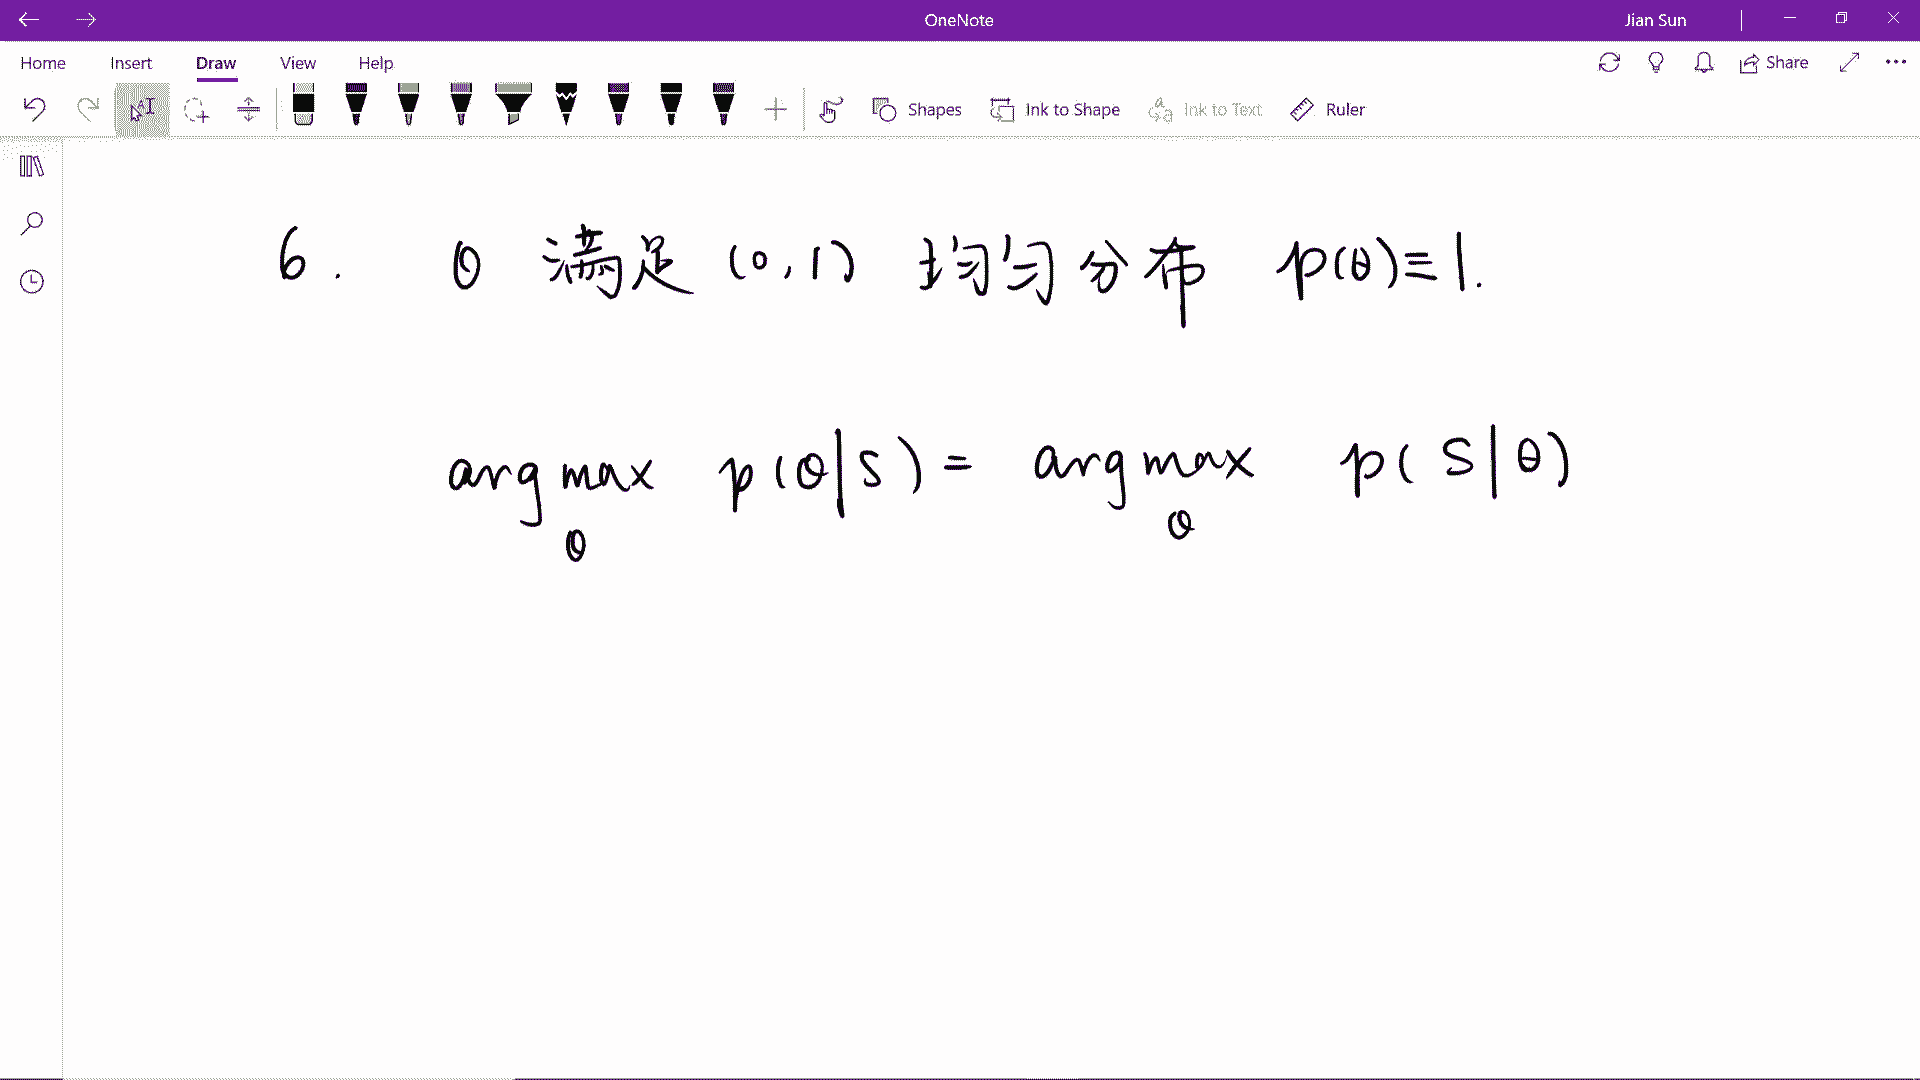 OneNote
Jian Sun
Home Insert Draw View Help
Share
Shapes Ink to Shape Ink to Text Ruler
6. θ 满足 (0,1) 均匀分布 p(θ)≡1.
arg max p(θ|S) = arg max p(S|θ)
θ θ